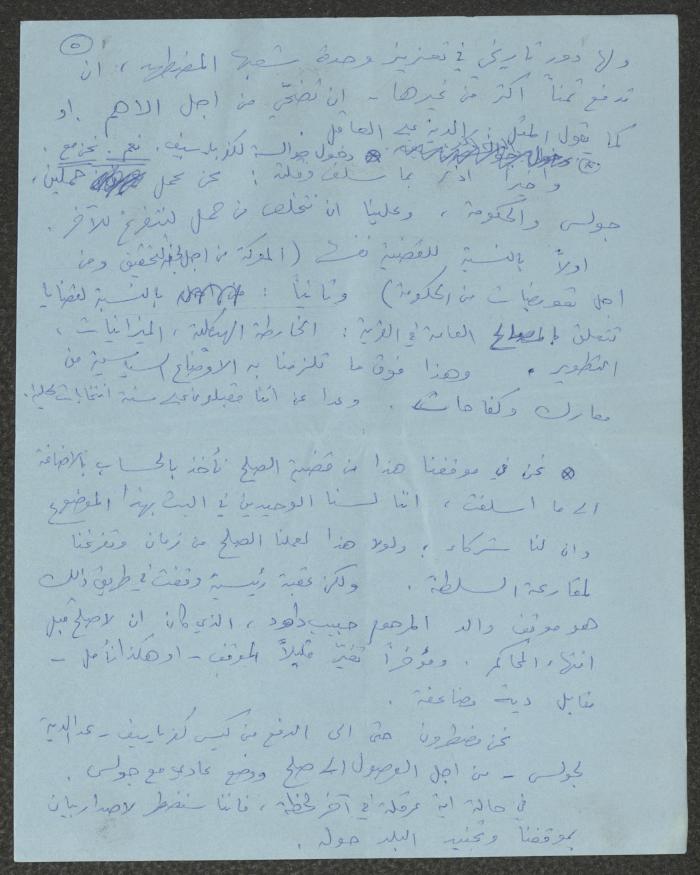 ٥
ولها دور تاريخي في تعزيز وحدة شعبها المضطهد، ان
تدفع ثمناً اكثر من غيرها - ان تضحّي من اجل الاهم. او
كما يقول المثل: الدية على العاقل
دخول جوالسة لكفر ياسيف. نعم. نحن مع.
واخيراً اذكر بما سلف وقلته: نحن نحمل حملين،
جولس والحكومة، وعلينا ان نتخلص من حمل لنتفرغ للآخر.
اولاً بالنسبة للقضية نفسها (المعركة من اجل لجنة التحقيق ومن
اجل تعويضات من الحكومة) وثانياً: بالنسبة لقضايا
تتعلق بالمصالح العامة في القرية: الخارطة الهيكلية، الميزانيات،
التطوير. وهذا فوق ما تلزمنا به الاوضاع السياسية من
معارك وكفاحات. وعدا عن اننا مقبلون على سنة انتخابات محلية.
⊗ نحن في موقفنا هذا من قضية الصلح نأخذ بالحساب بالاضافة
الى ما اسلفت، اننا لسنا الوحيدين في البت بهذا الموضوع
وان لنا شركاء؛ ولولا هذا لعملنا الصلح من زمان وتفرغنا
لمقارعة السلطة. ولكن عقبة رئيسية وقفت في طريق ذلك
هو موقف والد المرحوم حبيب داهود، الذي كان ان لا صلح قبل
انتهاء المحاكم. ومؤخراً تغيّر قليلاً الموقف - او هكذا نأمل -
مقابل دية مضاعفة.
نحن مضطرون حتى الى الدفع من كيس كفر ياسيف - عدا الدية
لجولس - من اجل الوصول الى صلح ووضع عادي مع جولس.
في حالة اية عرقلة في آخر لحظة، فاننا سنضطر لاصدار بيان
بموقفنا وتجنيد البلد حوله.